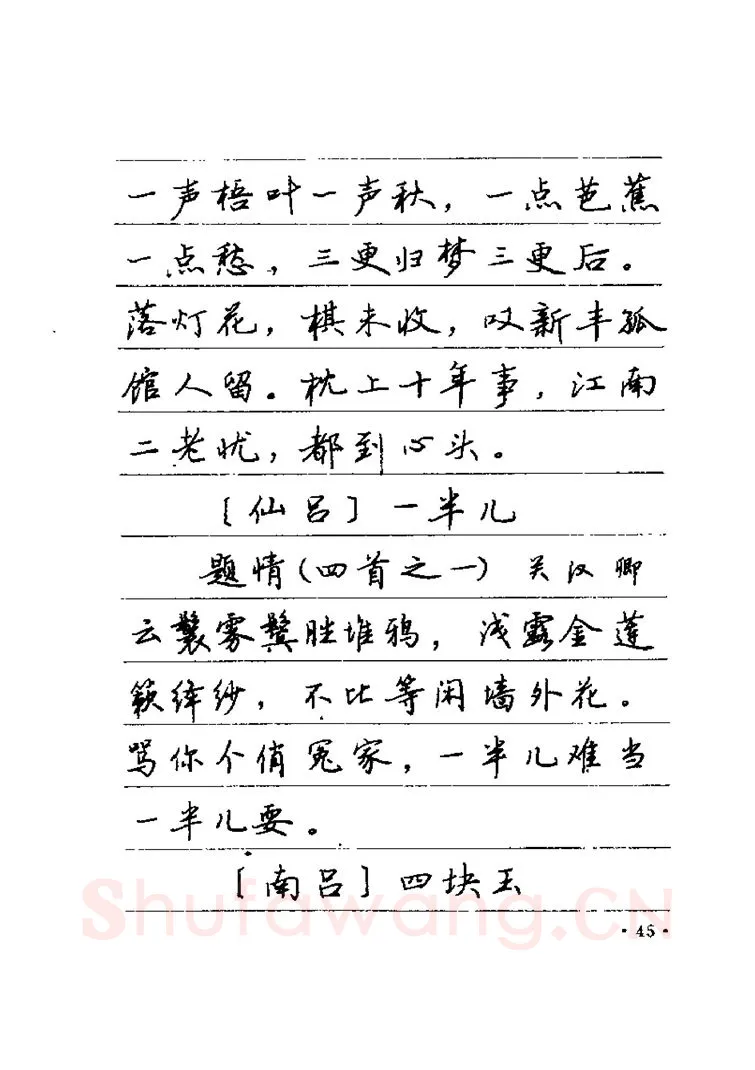 一声梧叶一声秋，一点芭蕉
一点愁，三更归梦三更后。
落灯花，棋未收，叹新丰孤
馆人留。枕上十年事，江南
二老忧，都到心头。
［仙吕］一半儿
题情（四首之一）关汉卿
云鬟雾鬓胜堆鸦，浅露金莲
簌绛纱，不比等闲墙外花。
骂你个俏冤家，一半儿难当
一半儿耍。
［南吕］四块玉
Shufawang.CN
·45·